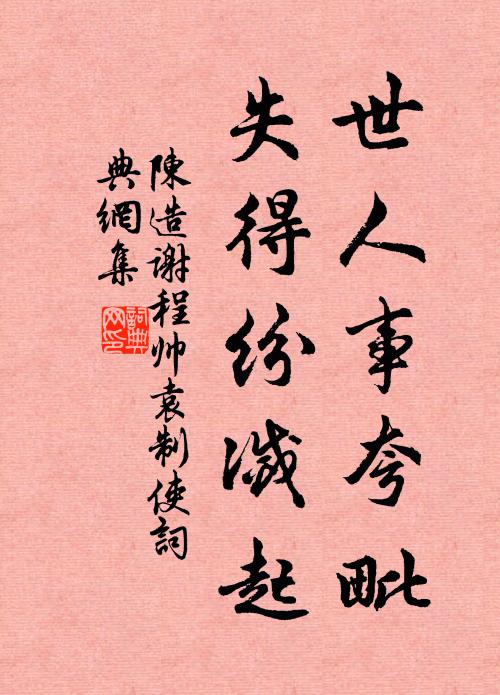 世人事夸毗
失得纷滅起
陳造谢程帅袁制使詞
典網集
詞典
网印